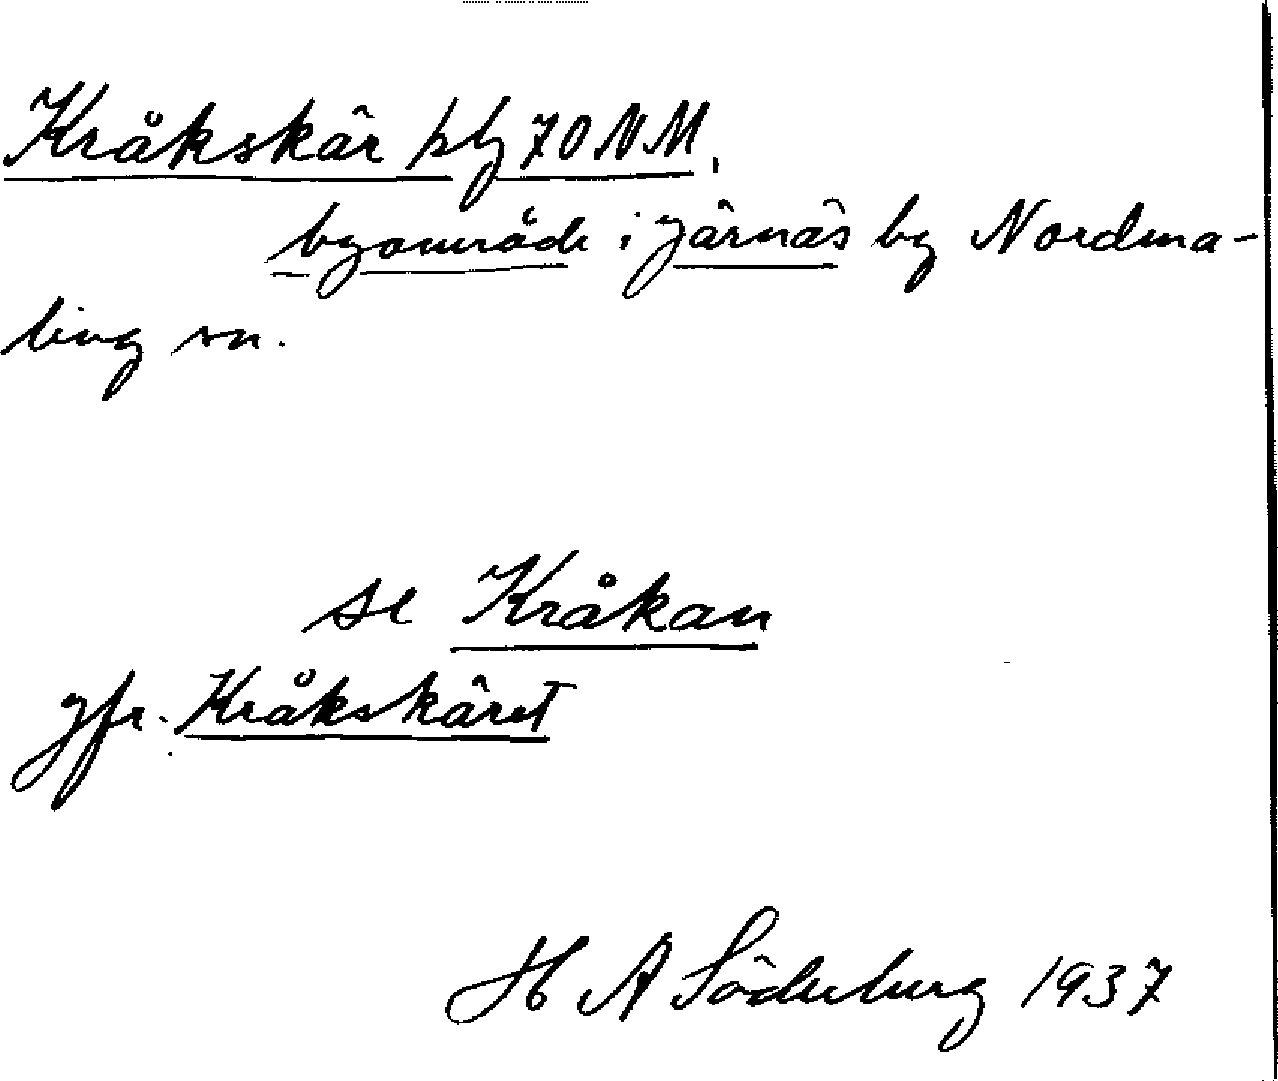 Kråkskär plg 70 NM,
byområde i Järnäs by Nordma-
ling sn.
se Kråkan
jfr. Kråkskäret
H A Söderberg 1937